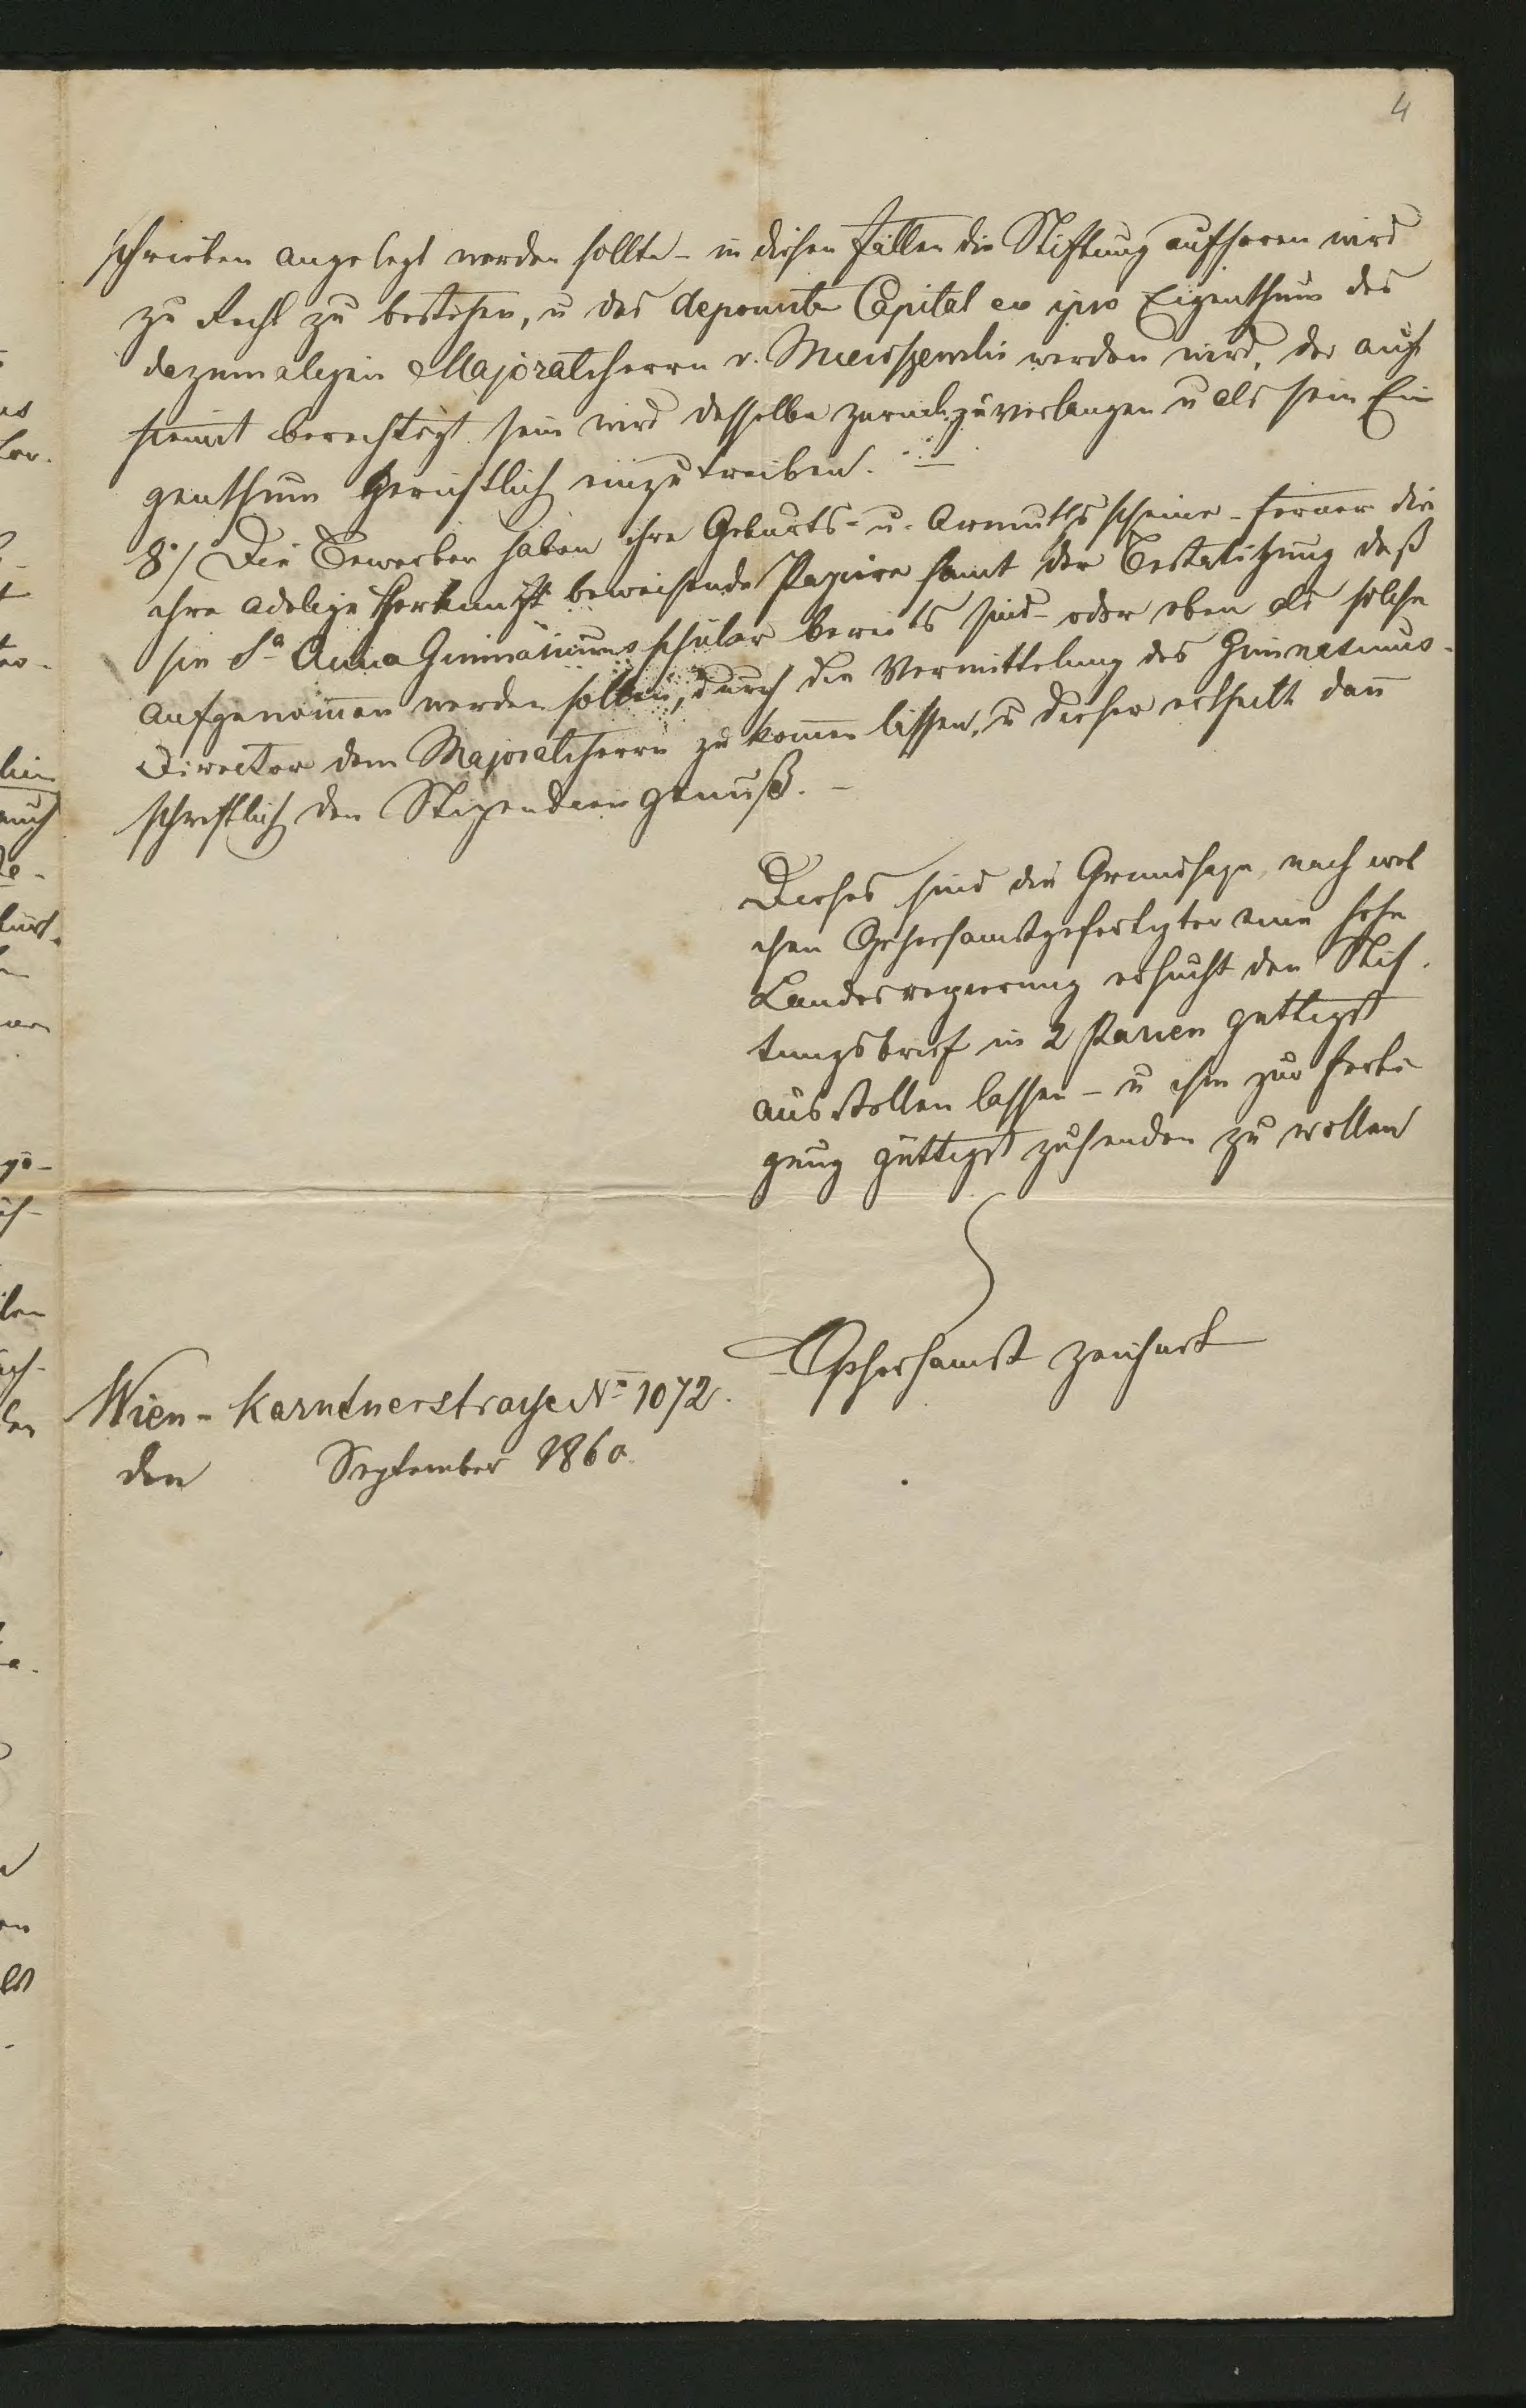 4
schrieben angelegt werden sollte - in diesen Fällen die Stiftung aufhoren wird
zu Recht zu bestehen, u das deponirte Capital eo ipso Eigenthum des
dazumaligen Majoratsherrn v. werden wird, der auch
somit berechtigt sein wird dasselbe zurückzuverlangen u als sein Ei
genthum gerichtlich einzutreiben. -
8°/ Die Bewerber haben ihre Geburts- u. Armuthsscheine - ferner die
ihre adelige Herkunft beweisende Papiere samt der Bestatigung daß
sie Sa Anna Gimnasiums schüler bereits sind - oder eben als solche
aufgenom̄en werden sollen, durch die Vermittelung des Gimnasiums-
Director dem Majoratsherrn zu kom̄en lassen, u dieser ertheilt dan̄
schriftlich den Stipendien genuß. -
Dieses sind die Grundsaze, nach wel
chen Gehorsamstgefertigter eine hohe
Landesregierung ersucht den Stif-
tungsbrief in 2 Parien guttigst
ausstellen lassen - u ihm zur Ferti
gung güttigst zusenden zu wollen
Gehorsamst zeichnet
Wien - Karntnerstrasse No 1072.
den September 1860.